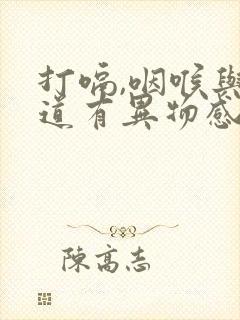 打嗝,咽喉與
道有異物感
陳高志